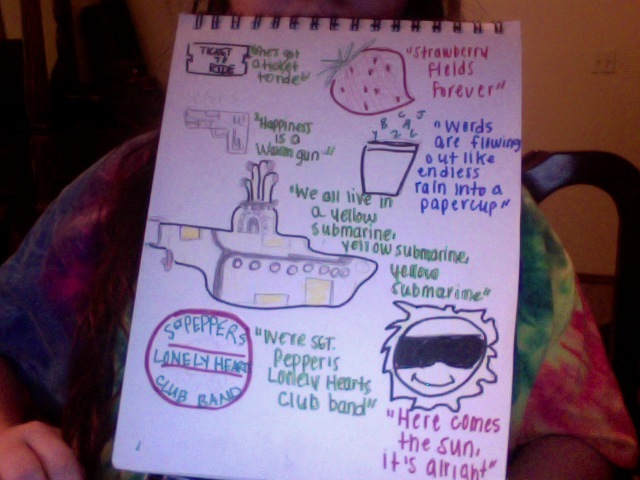 TICKET
TO
RIDE
"She's got
a ticket
to ride"
"Strawberry
Fields
Forever"
"Happiness
is a
Warm gun"
B C A J
Y Z L
"Words
are flowing
out like
endless
rain into a
papercup"
"We all live in
a yellow
submarine,
yellow submarine,
yellow
submarine"
Sgt PEPPERS
LONELY HEART
CLUB BAND
"We're SGT.
Pepper's
Lonely Hearts
Club band"
"Here comes
the sun,
it's alright"